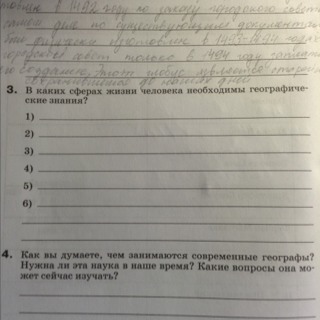 в 1492 году по
по существующим документам
в 1493-1494 годах
совет только в 1494 году
глобус является
до наших дней
3. В каких сферах жизни человека необходимы географиче-
ские знания?
1)
2)
3)
4)
5)
6)
4. Как вы думаете, чем занимаются современные географы?
Нужна ли эта наука в наше время? Какие вопросы она мо-
жет сейчас изучать?